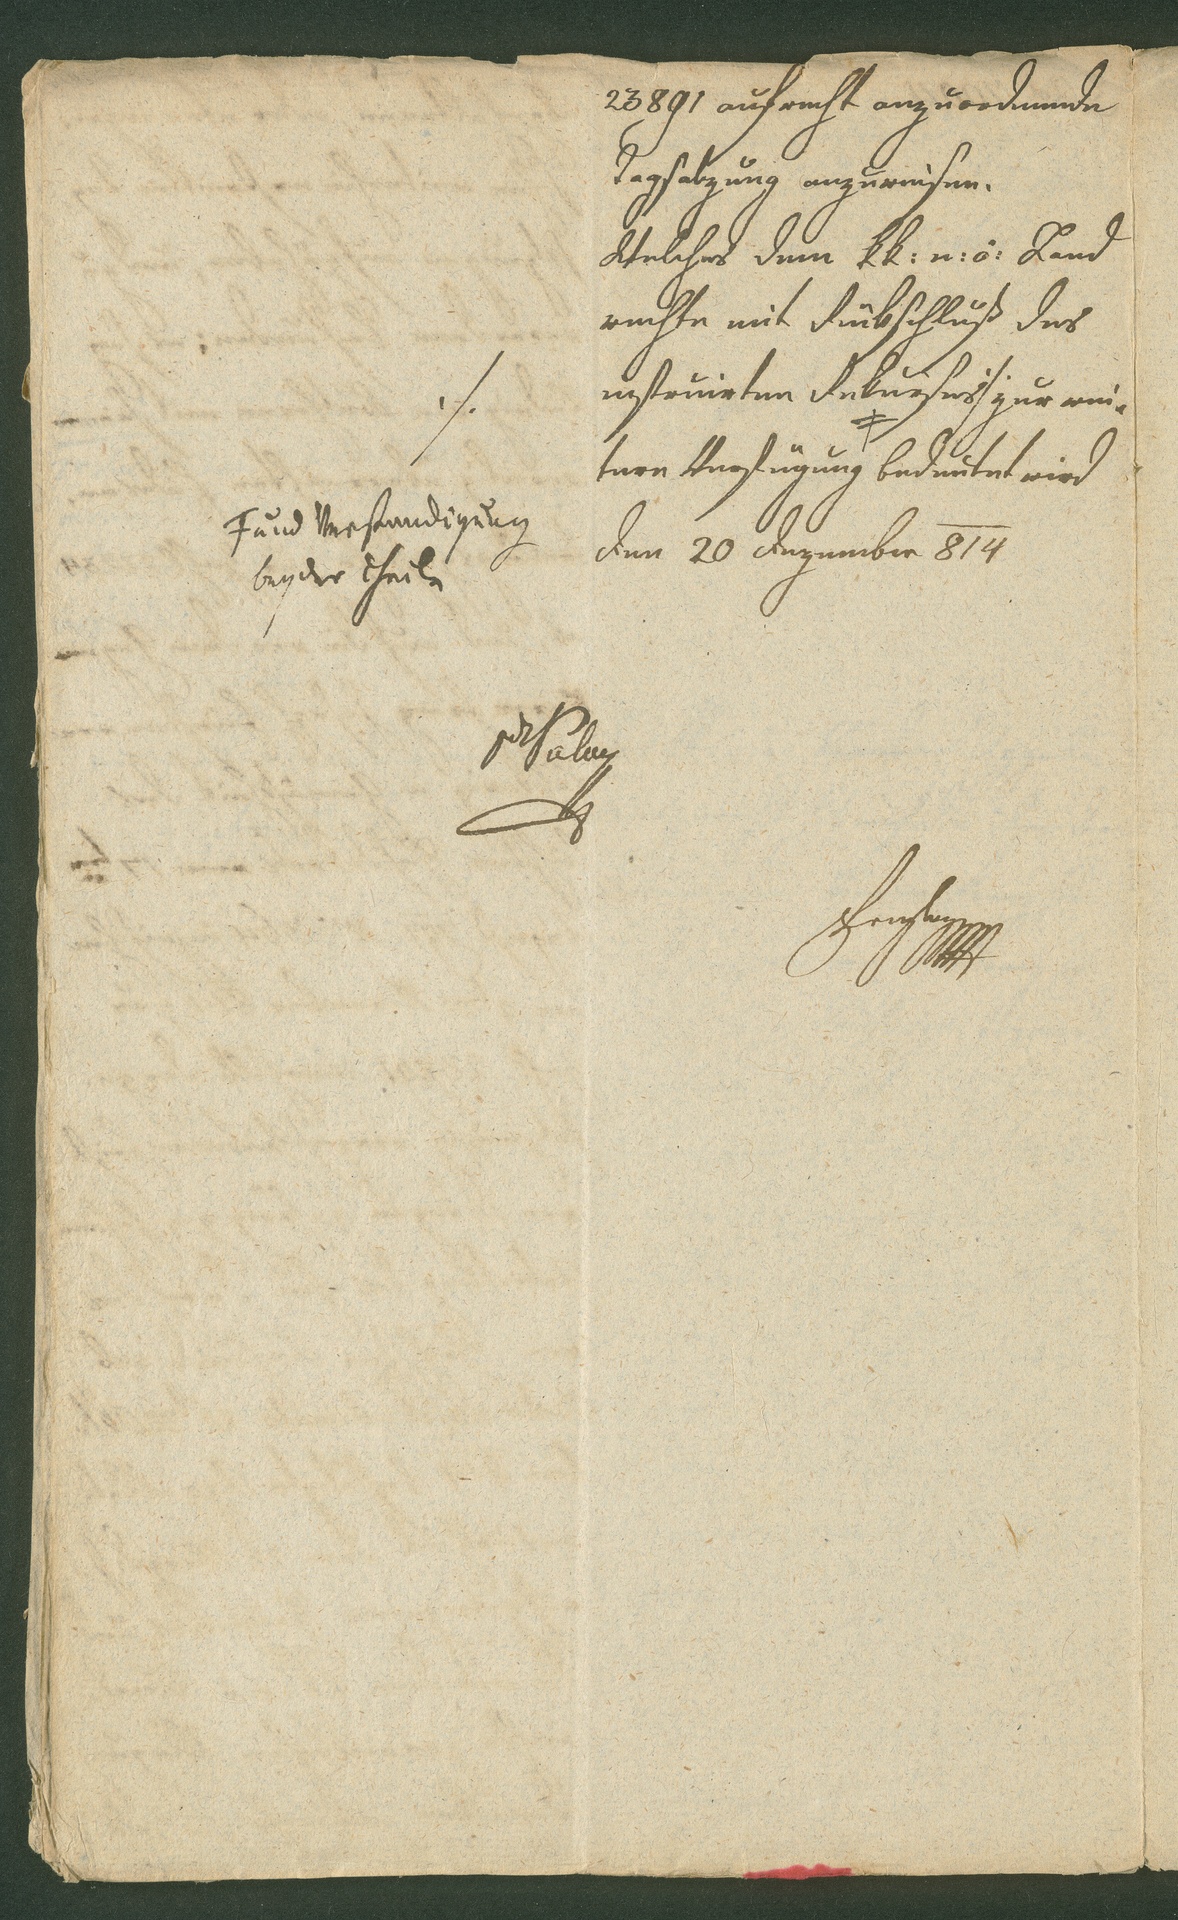 23891 aufrecht anzuordnende
Tagsatzung anzuweisen.
Welches dem kk: n: ö: Land
rechte mit Rückschluß des
instruirten Rekurses ·/· zur wei-
tern Verfügung ‡ bedeutet wird
den 20 Dezember 814
·/·
‡ und Verständigung
beyder Theile